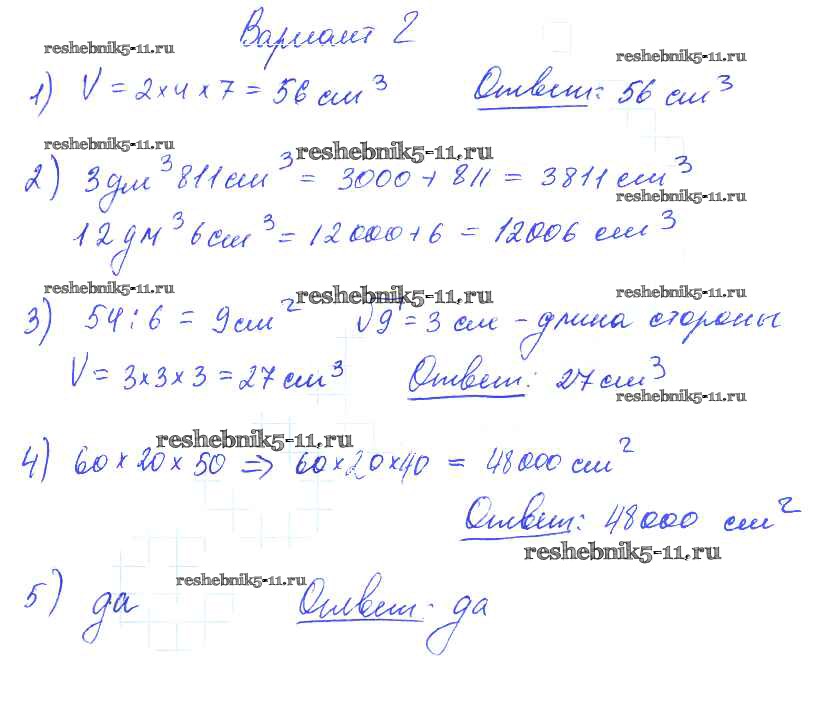 Вариант 2
reshebnik5-11.ru
reshebnik5-11.ru
1) V = 2 × 4 × 7 = 56 см³ Ответ: 56 см³
reshebnik5-11.ru
reshebnik5-11.ru
2) 3 дм³ 811 см³ = 3000 + 811 = 3811 см³
reshebnik5-11.ru
12 дм³ 6 см³ = 12000 + 6 = 12006 см³
reshebnik5-11.ru
reshebnik5-11.ru
reshebnik5-11.ru
3) 54 : 6 = 9 см² √9 = 3 см - длина стороны
V = 3 × 3 × 3 = 27 см³ Ответ: 27 см³
reshebnik5-11.ru
reshebnik5-11.ru
4) 60 × 20 × 50 ⇒ 60 × 20 × 40 = 48000 см²
Ответ: 48000 см²
reshebnik5-11.ru
reshebnik5-11.ru
5) да Ответ: да